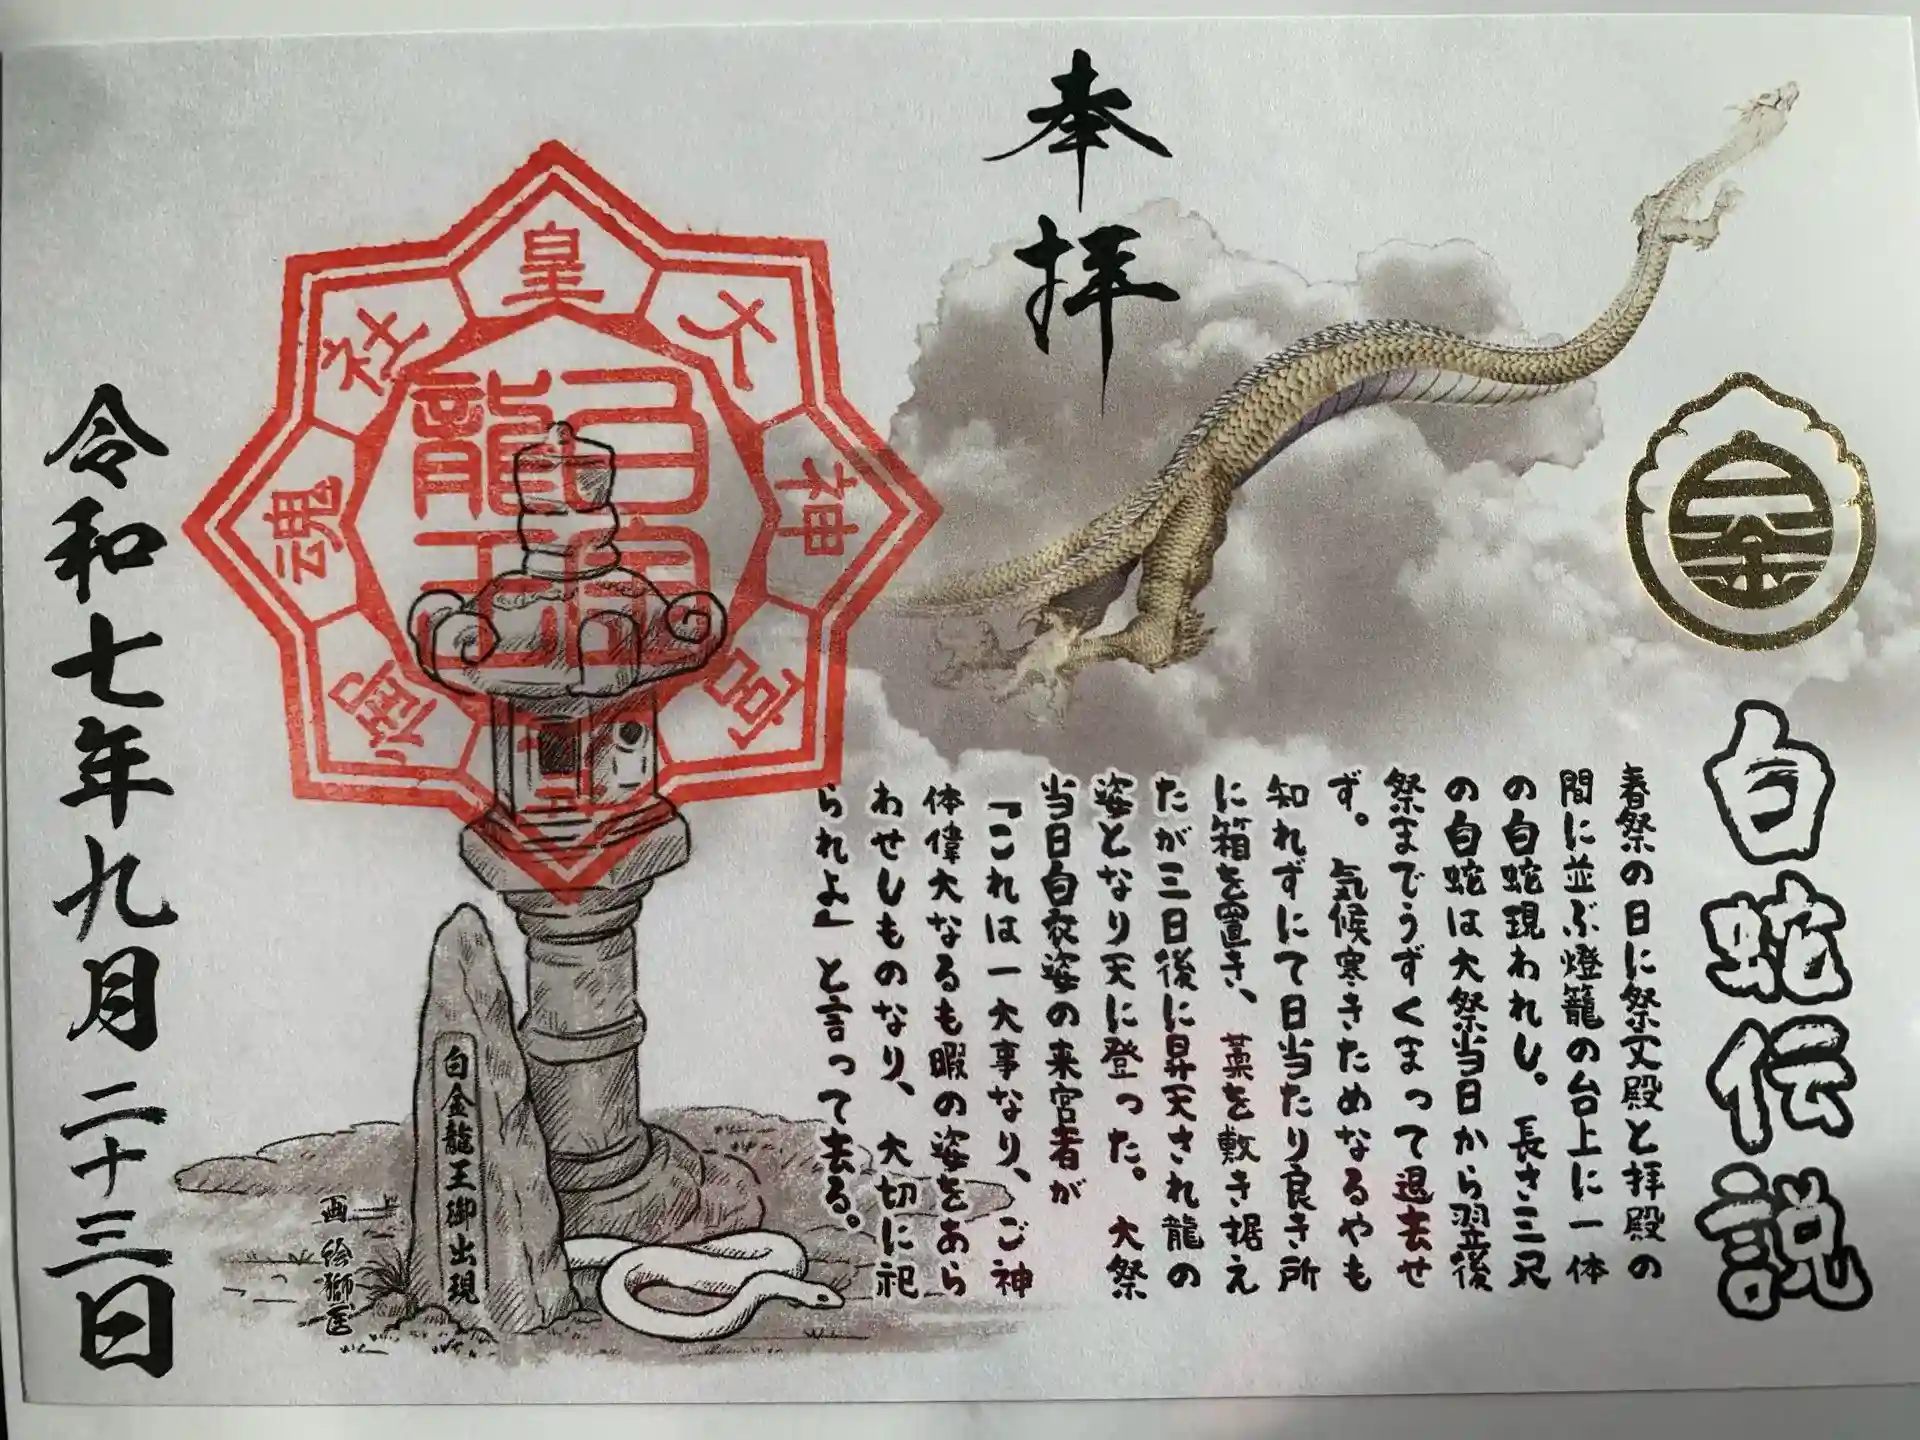 奉拝
白蛇伝説
春祭の日に祭文殿と拝殿の
間に並ぶ燈籠の台上に一体
の白蛇現われし。長さ三尺
の白蛇は大祭当日から翌後
祭までうずくまって退去せ
ず。気候寒きためなるやも
知れずにて日当たり良き所
に箱を置き、藁を敷き据え
たが三日後に昇天され龍の
姿となり天に登った。大祭
当日白衣姿の来宮者が
「これは一大事なり、ご神
体偉大なるも暇の姿をあら
わせしものなり、大切に祀
られよ」と言って去る。
皇大神宮
御魂社
龍王
白金龍王御出現
画 絵獅匠
令和七年九月二十三日